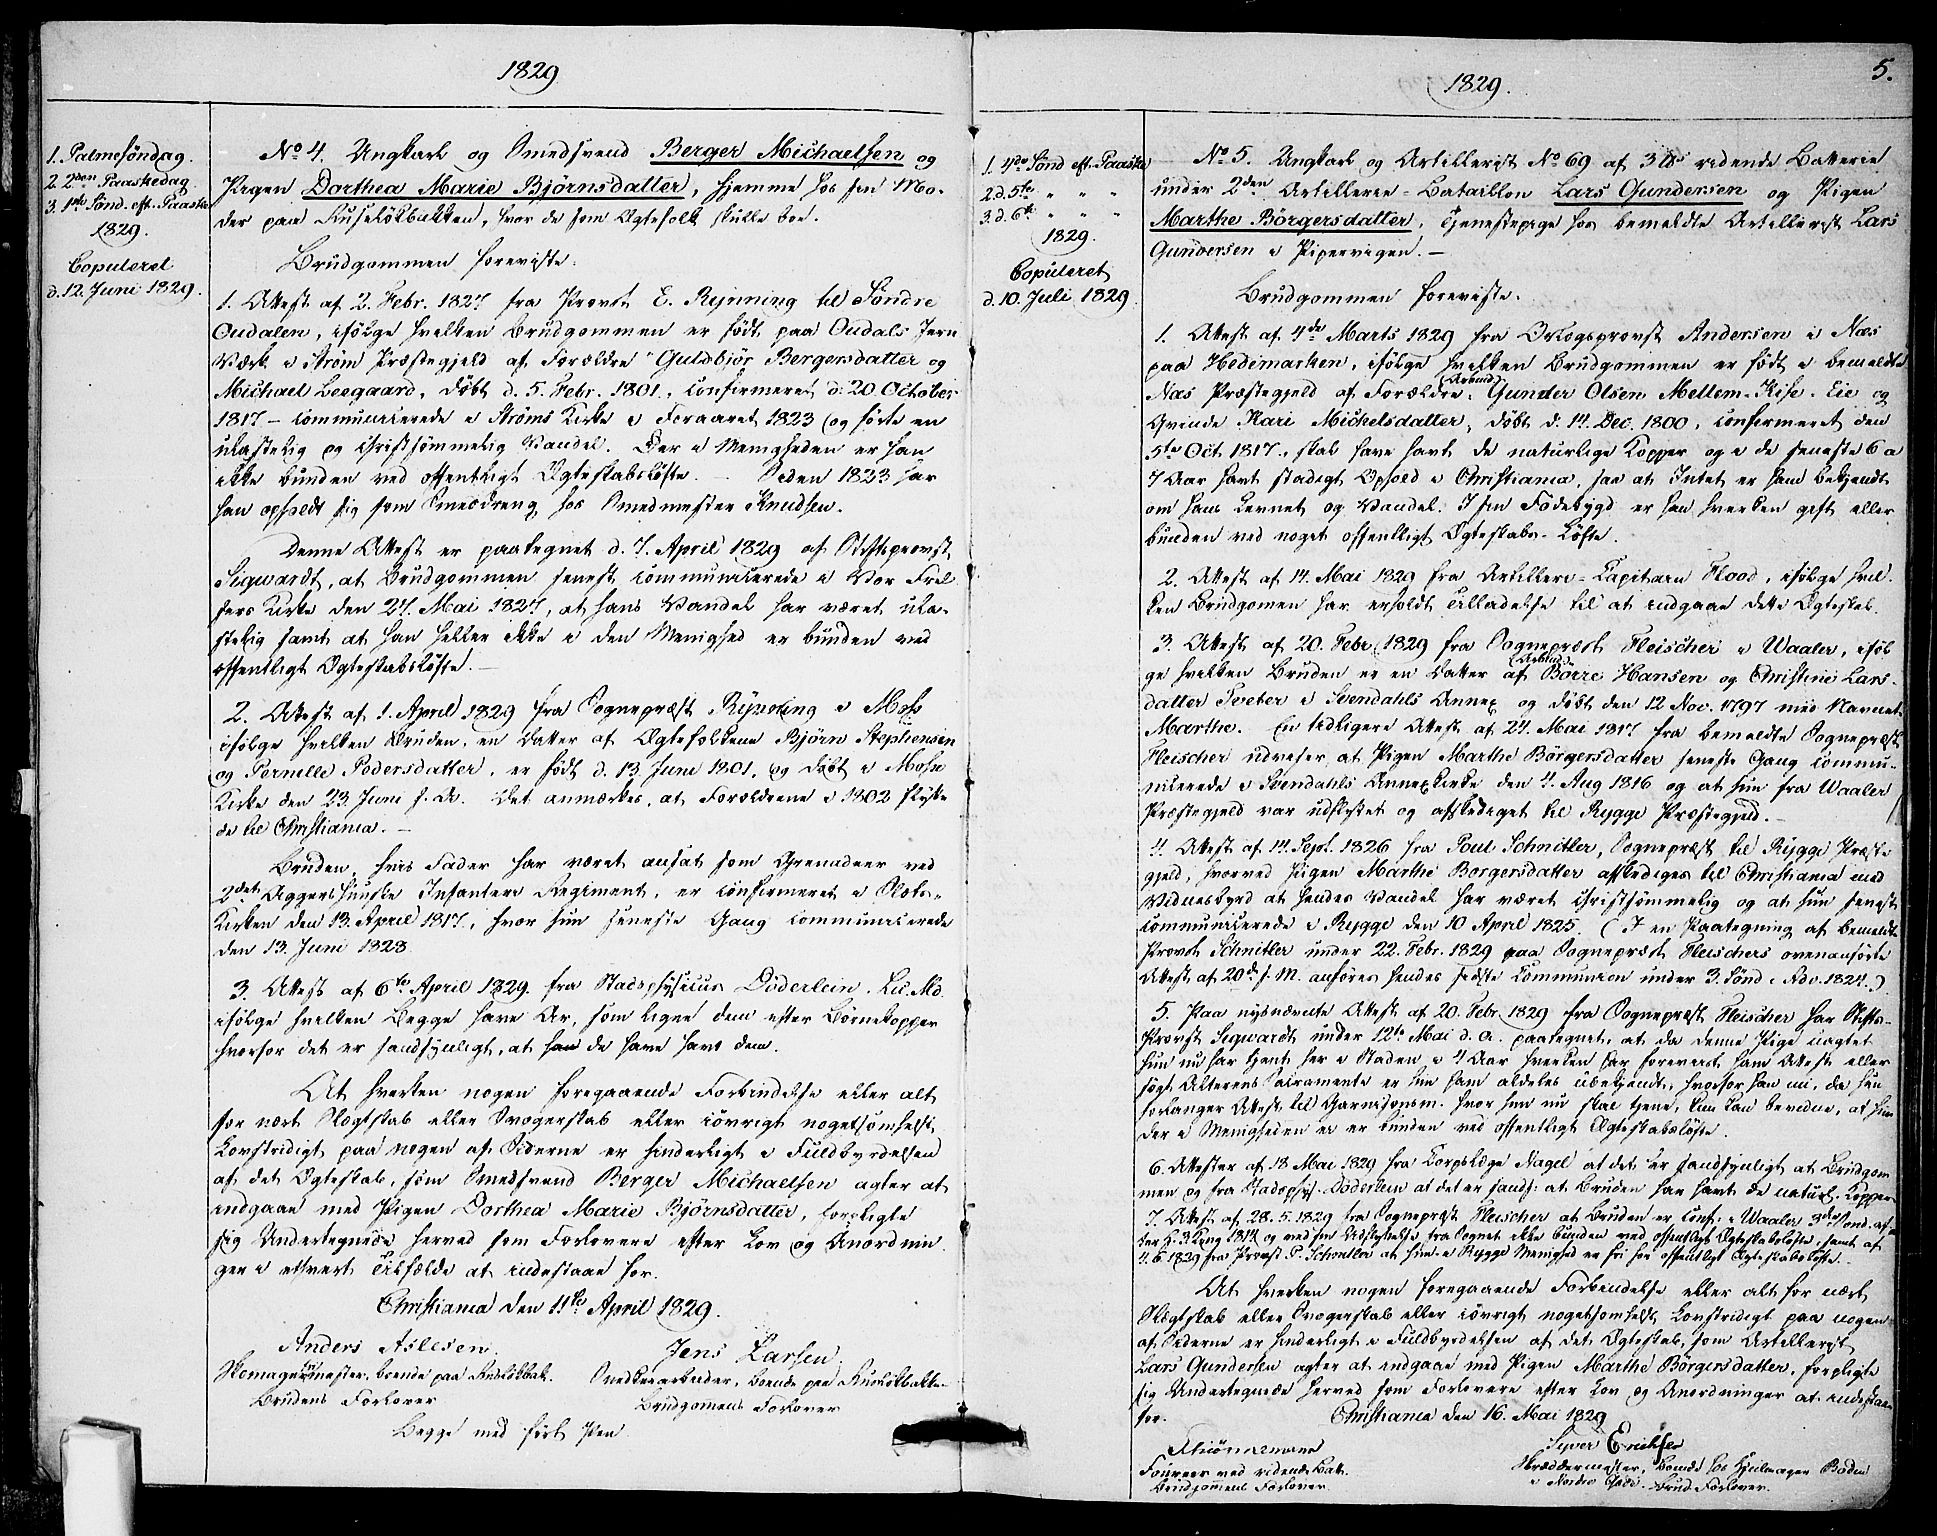 1829
1. Palmesöndag.
2. 2den Paaskedag
3. 1ste Sönd. eft. Paaske
1829.
Copuleret
d. 12. Juni 1829.
No 4. Ungkarl og Smedsvend Berger Michaelsen og
Pigen Dorthea Marie Björnsdatter, hjemme hos sin Mo-
der paa Ruselökbakken, hvor de som Ægtefolk skulle boe.
Brudgommen foreviste:
1. Attest af 2. Febr. 1827 fra Provst E. Rynning til Söndre
Oudalen, ifölge hvilken Brudgommen er födt paa Oudals Jern
Værk i Ström Præstegjeld af Forældre Guldbjör Bergersdatter og
Michael Leegaard, döbt d. 5. Febr. 1801, confirmeret d. 20 October
1817 - communicerede i Ströms Kirke i Foraaret 1823 og förte en
ulastelig og christsömmelig Vandel. Der i Menigheden er han
ikke bunden ved offentligt Ægteskabslöfte. - Siden 1823 har
han opholdt sig som Smeddreng hos Smedmester Knudsen.
Denne Attest er paategnet d. 7. April 1829 af Stiftsprovst
Sigwardt, at Brudgommen senest communicerede i Vor Frel
sers Kirke den 27. Mai 1827, at hans Vandel har været ula-
stelig samt at han heller ikke i den Menighed er bunden ved
offentligt Ægteskabslöfte. -
2. Attest af 1. April 1829 fra Sognepræst Rynning i Moss
ifölge hvilken Bruden, en Datter af Ægtefolkene Björn Stephensen
og Pernille Pedersdatter, er födt d. 13. Juni 1801, og döbt i Moss
Kirke den 23. Juni s. A. Det anmærkes, at Forældrene i 1802 flytte
de til Christiania. -
Bruden, hvis Fader har været ansat som Grenadeer ved
2det Aggershuuske Infanteri Regiment, er confirmeret i Slots-
Kirken den 13. April 1817, hvor hun seneste Gang communicerede
den 13. Juni 1828.
3. Attest af 6te April 1829. fra Stadsphysicus Döderlein. Lic. Md.
ifölge hvilken Begge have Ar, som ligne dem efter Börnekopper
hvorfor det er sandsynligt, at han de have havt dem.
At hverken nogen foregaaende Forbindelse eller alt
for nært Slægtskab eller Svogerskab eller iövrigt nogetsomhelst
Lovstridigt paa nogen af Siderne er hinderligt i Fuldbyrdelsen
af det Ægteskab, som Smedsvend Berger Michaelsen agter at
indgaae med Pigen Dorthea Marie Björnsdatter, forpligte
sig Undertegnede herved som Forlovere efter Lov og Anordnin
ger i ethvert Tilfælde at indestaae for.
Christiania den 11te April 1829.
Anders Aslesen. Jens Larsen
Skomagermester, boende paa Ruselökbak. Snedkerarbeider, boende paa Ruselökbakke-
Brudens Forlover Brudgomens Forlover
Begge med fört Pen
1829.
5.
1. 4de Sönd eft. Paaske
2. d. 5te " "
3. d. 6te " "
1829.
Copuleret
d. 10. Juli 1829.
No 5. Ungkarl og Artillerist No 69 af 3die ridende Batterie
under 2den Artillerie-Bataillon Lars Gundersen og Pigen
Marthe Börgersdatter, Tjenestepige hos bemeldte Artillerist Lars
Gundersen i Pipervigen. -
Brudgommen foreviste.
1. Attest af 4de Marts 1829 fra Krogsprovst Andersen i Næs
paa Hedemarken, ifölge hvilken Brudgommen er födt i bemeldte
Næs Præstegjeld af Forældre: (Arbeid) Gunder Olsen Mellem-Kise-Eie og
Qvinde Mari Mickelsdatter, döbt d. 14. Dec. 1800, confirmeret den
5te Oct. 1817, skal have havt de naturlige Kopper og i de seneste 6 a
7 Aar havt stadigt Ophold i Christiania, saa at Intet er ham bekjendt
om hans Levnet og Vandel. I sin Födebygd er han hverken gift eller
bunden ved noget offentligt Ægteskabs-Löfte.
2. Attest af 14. Mai 1829 fra Artilleri-Capitain Flood, ifölge hvil
ken Brudgomen har erholdt Tilladelse til at indgaae dette Ægteskab.
3. Attest af 20. Febr. 1829 fra Sognepræst Fleischer i Waaler, iföl
ge hvilken Bruden er en Datter af (Arbeids) Börre Hansen og Christine Lars
datter Tveter i Svendahls Annex og döbt den 12 Nov. 1797 med Navnet
Marthe. En tidligere Attest af 24. Mai 1817 fra bemeldte Sognepræst
Fleischer udviser, at Pigen Marthe Börgersdatter seneste Gang commu-
nicerede i Svendahls Annexkirke den 4. Aug 1816 og at hun fra Waaler
Præstegjeld var udskrevet og afskediget til Rygge Præstegjeld. -
4. Attest af 14. Sept. 1826 fra Poul Schnitler, Sognepræst til Rygge Præste
gjeld, hvorved Pigen Marthe Borgersdatter afskediges til Christiania med
Vidnesbyrd at hendes Vandel har været christsömmelig og at hun senest
communicerede i Rygge den 10 April 1825. (I en Paategning af bemeldte
Provst Schnitler under 22. Febr. 1829 paa Sognepræst Fleischers ovenanförte
Attest af 20de s. M. anföres hendes sidste Communion under 3. Sönd. i Adv. 1824.)
5. Paa nysnævnte Attest af 20. Febr. 1829 fra Sognepræst Fleischer har Stifts-
Provst Sigwardt under 12te Mai d. A. paategnet, at da denne Pige uagtet
hun nu har tjent her i Staden i 4 Aar hverken har foreviist ham Attest eller
sögt Alterens Sacramente er hun ham aldeles ubekjendt, hvorfor han nu, da hun
forlanger Attest til Garnisonsm. hvor hun nu skal tjene, kun kan bevidne, at hun
der i Menigheden ei er bunden ved offentligt Ægteskabslöfte.
6. Attester af 18. Mai 1829 fra Corpslæge Nagel at det er sandsynligt at Brudgom
men og fra Stadsphys. Döderlein at det er sands. at Bruden har havt de naturl. Kopper
7. Attest af 28. 5. 1829 fra Sognepræst Fleischer at Bruden er conf. i Waaler 3die Sönd. ef
ter H. 3 Kong. 1814 og ved sin Udflyttelse fra Sognet ikke bunden ved offentligt Ægteskabslöfte, samt af
4. 6. 1829 fra Provst P. Schnitler at hun i Rygge Menighed er fri for offentligt Ægteskabslöfte. -
At hverken nogen foregaaende Forbindelse eller alt for nært
Slægtskab eller Svogerskab eller iövrigt nogetsomhelst Lovstridigt paa nogen
af Siderne er hinderligt i Fuldbyrdelsen af det Ægteskab, som Artillerist
Lars Gundersen agter at indgaae med Pigen Marthe Börgersdatter, forpligte
sig Undertegnede herved som Forlovere efter Lov og Anordninger at indestaae
for. Christiania den 16. Mai 1829
Syver Erichsen
Foureer ved ridende Bat. Skræddermester, boende hos Hjulmager Boden
Brudgommens Forlover. Brud. Forlover.